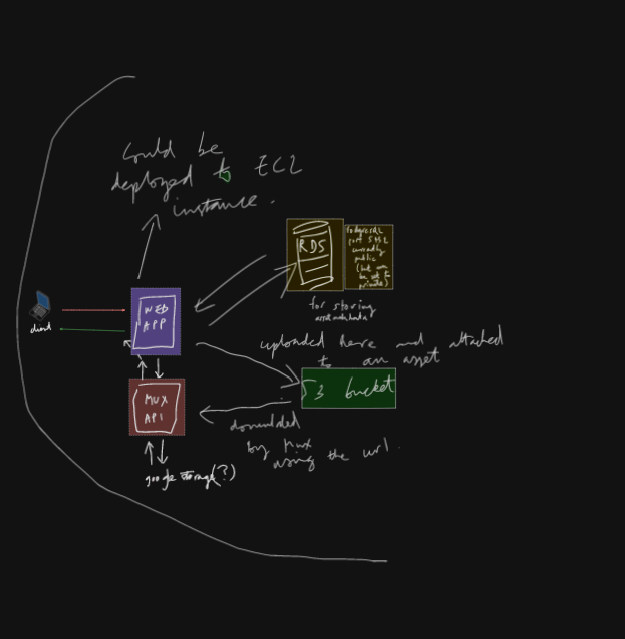 Could be
deployed to EC2
instance.
RDS
PostgreSQL
port 5432
currently
public
(but can
be set to
private)
for storing
asset metadata
client
WEB
APP
uploaded here and attached
to an asset
S3 bucket
MUX
API
downloaded
by Mux
using the url.
google storage(?)